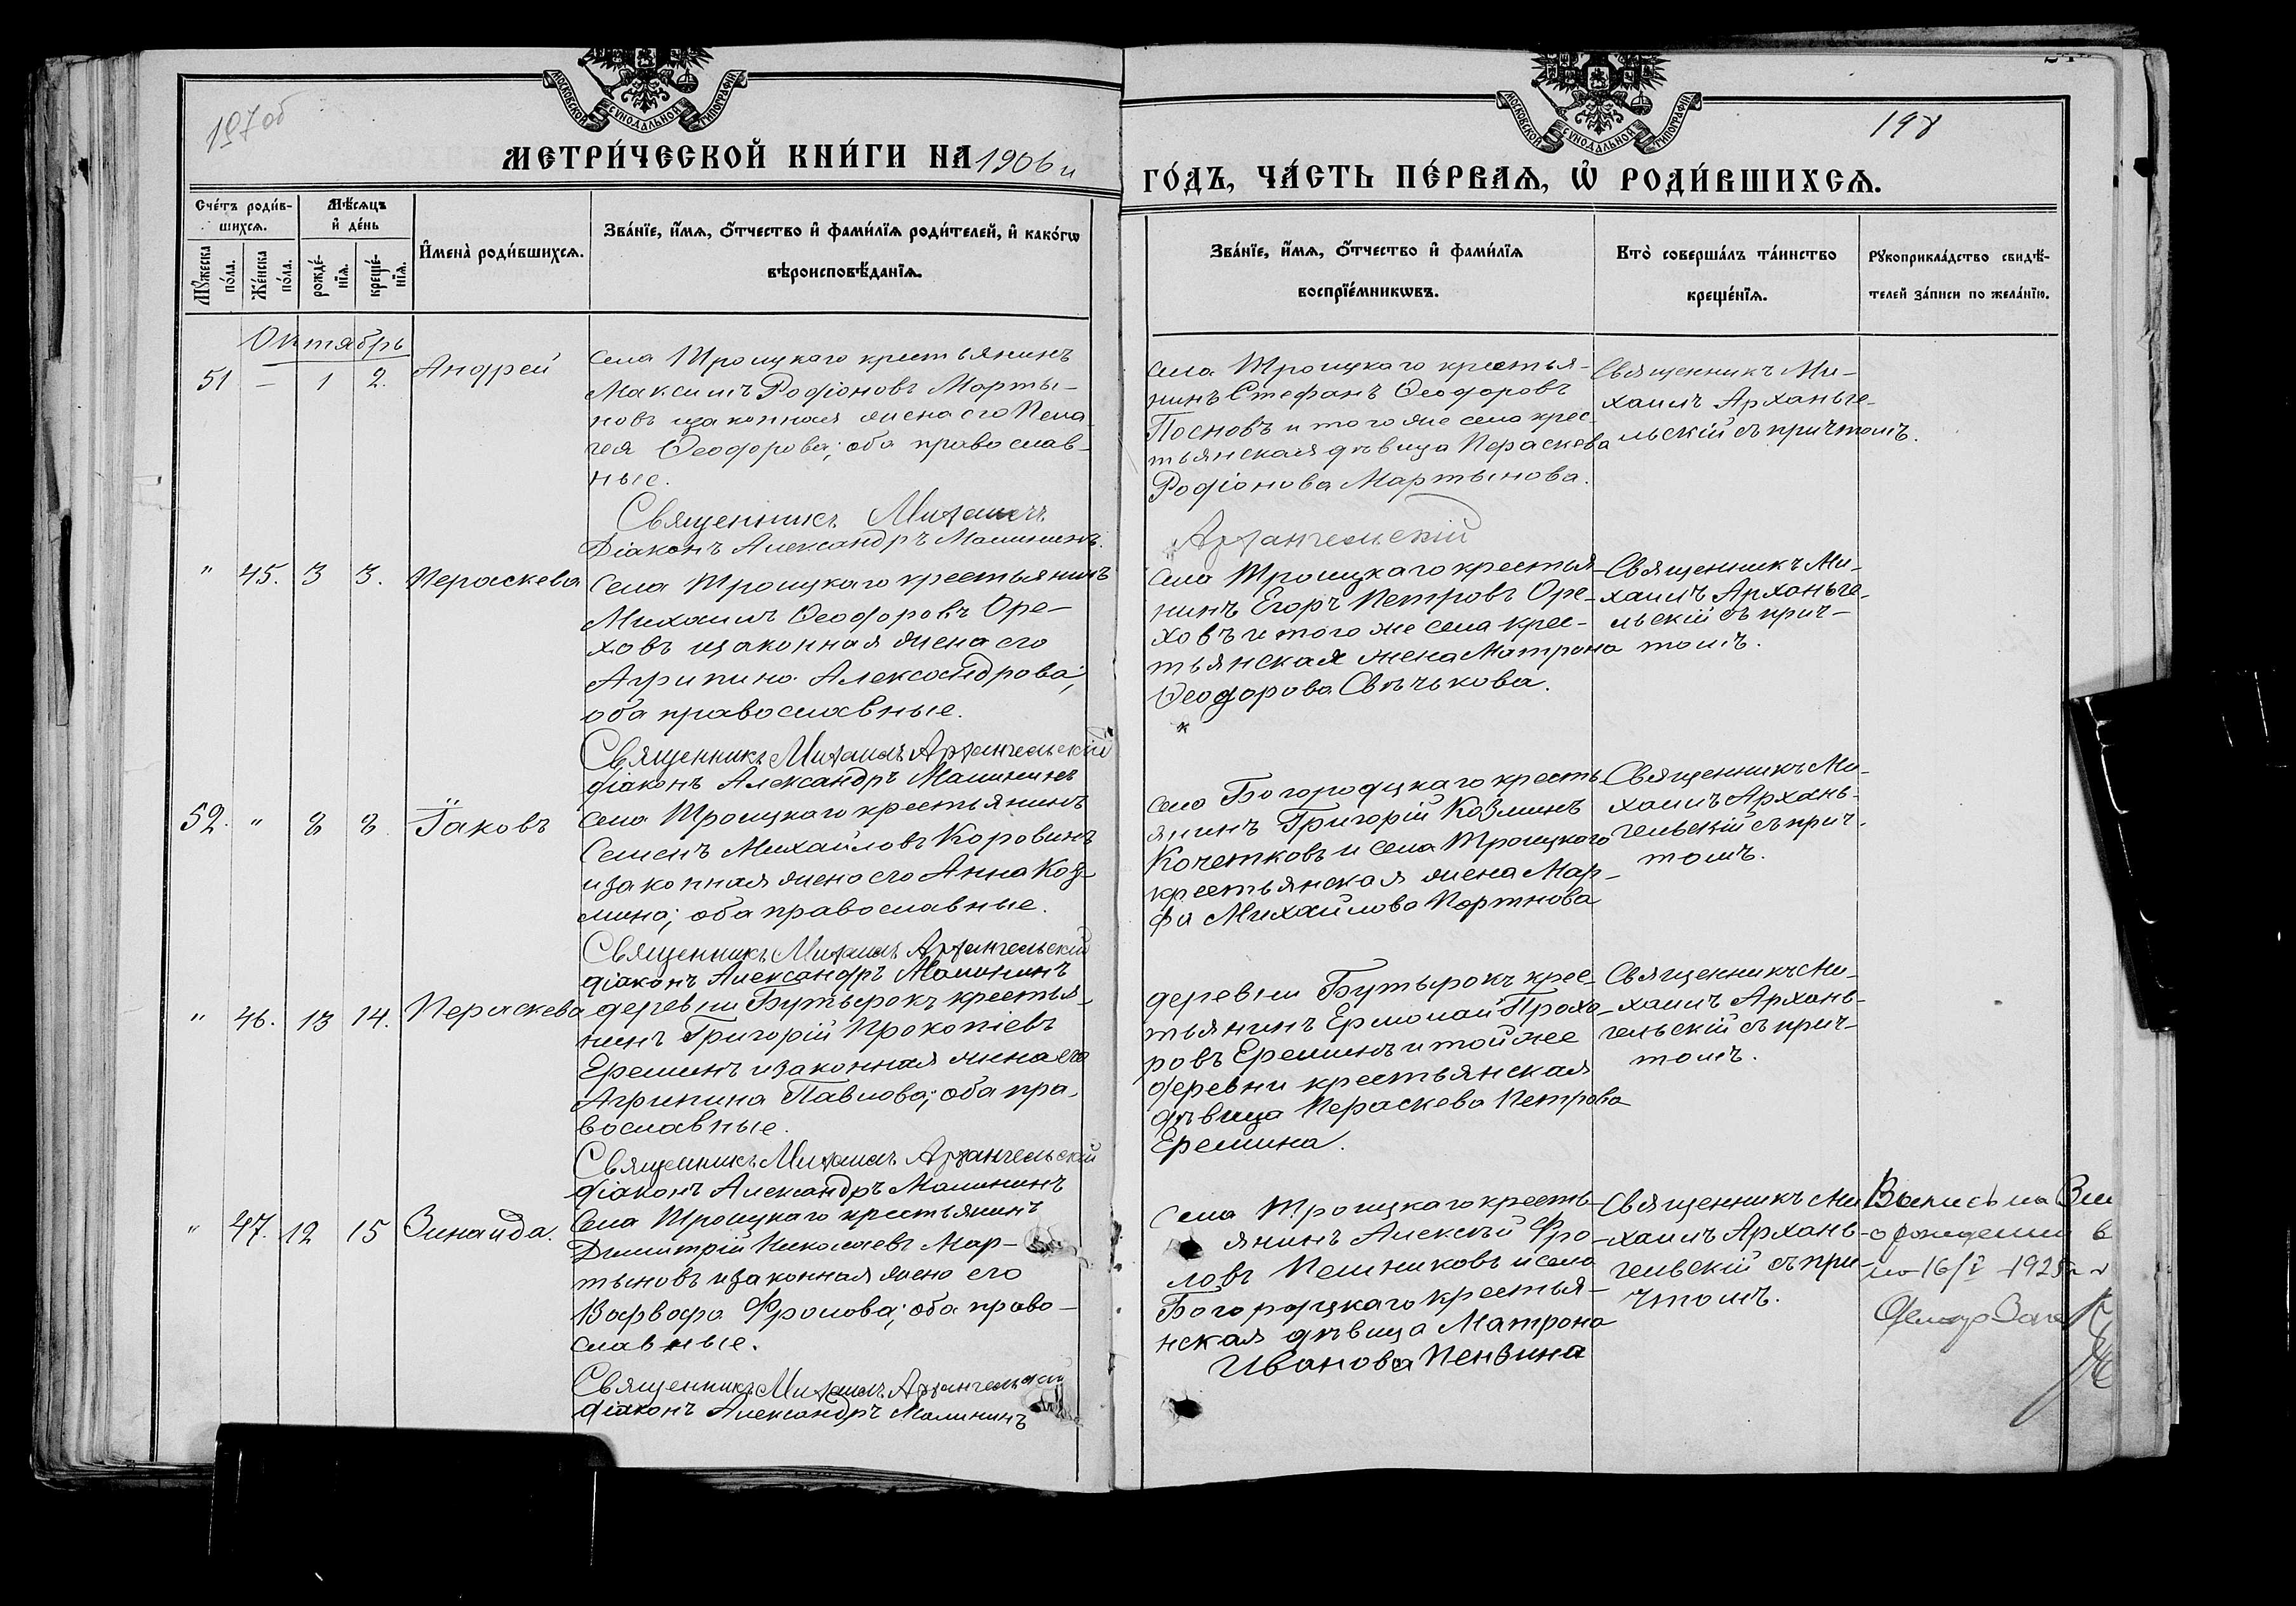 197 об
МОСКОВСКОЙ СѴНОДАЛЬНОЙ ТИПОГРАФІИ
МЕТРИ́ЧЕСКОЙ КНИ́ГИ НА 1906 й
Сче́тъ роди́в-
шихсѧ.
Мꙋ́жеска по́ла.
Же́нска по́ла.
Мѣ́сѧцъ
и҆ де́нь
рожде́-
нїѧ.
креще́-
нїѧ.
И҆мена̀ роди́вшихсѧ.
Зва́нїе, и҆́мѧ, ѻ҆́тчество и҆ фами́лїѧ роди́телей, и҆ како́гѡ
вѣроисповѣ́данїѧ.
Октябрь
51 – 1 2. Андрей
села Троицкаго крестьянинъ
Максимъ Родіоновъ Марты-
новъ и законная жена его Пела-
гея Ѳеодорова; оба православ-
ные.
Священникъ Михаилъ
Діаконъ Александръ Малининъ.
" 45. 3 3. Пераскева
Села Троицкаго крестьянинъ
Михаилъ Ѳеодоровъ Оре-
ховъ и законная жена его
Агрипина Александрова;
оба православные.
Священникъ Михаилъ Архангельскій
діаконъ Александръ Малининъ
52. " 8 8. Іаковъ
Села Троицкаго крестьянинъ
Семенъ Михайловъ Коровинъ
и законная жена его Анна Коз-
мина; оба православные.
Священникъ Михаилъ Архангельскій
діаконъ Александръ Малининъ
" 46. 13 14. Пераскева
деревни Бутырокъ крестья-
нинъ Григорій Прокопіевъ
Ереминъ и законная жена его
Агрипина Павлова; оба пра-
вославные.
Священникъ Михаилъ Архангельскій
діаконъ Александръ Малининъ
" 47. 12 15 Зинаида.
Села Троицкаго крестьянинъ
Димитрій Николаевъ Мар-
тыновъ и законная жена его
Варвара Фролова; оба право-
славные.
Священникъ Михаилъ Архангельскій
діаконъ Александръ Малининъ
МОСКОВСКОЙ СѴНОДАЛЬНОЙ ТИПОГРАФІИ
198
ГО́ДЪ, ЧА́СТЬ ПЕ́РВАѦ, Ѡ҆ РОДИ́ВШИХСѦ.
Зва́нїе, и҆́мѧ, ѻ҆́тчество и҆ фами́лїѧ
воспрїе́мникѡвъ.
Кто̀ соверша́лъ та́инство
креще́нїѧ.
Рꙋкоприкла́дство свидѣ́-
телей за́писи по жела́нїю.
села Троицкаго крестья-
нинъ Стефанъ Ѳеодоровъ
Посновъ и того же села крес-
тьянская дѣвица Пераскева
Родіонова Мартынова.
Архангельскій
Священникъ Ми-
хаилъ Арханьге-
льскій съ причтомъ.
села Троицкаго крестья-
нинъ Егоръ Петровъ Оре-
ховъ и того же села крес-
тьянская жена Матрона
Ѳеодорова Свѣчькова.
Священникъ Ми-
хаилъ Арханьге-
льскій съ прич-
томъ.
села Богородцкаго кресть-
янинъ Григорій Козминъ
Кочетковъ и села Троицкаго
крестьянская жена Мар-
фа Михайлова Портнова
Священникъ Ми-
хаилъ Архань-
гельскій съ прич-
томъ.
деревни Бутырокъ крес-
тьянинъ Ермолай Прохо-
ровъ Ереминъ и той же
деревни крестьянская
дѣвица Пераскева Петрова
Еремина.
Священникъ Ми-
хаилъ Архань-
гельскій съ прич-
томъ.
села Троицкаго кресть-
янинъ Алексѣй Фро-
ловъ Пешниковъ и села
Богородцкаго крестья-
нская дѣвица Матрона
Иванова Пензина
Священникъ Ми-
хаилъ Архань-
гельскій съ при-
чтомъ.
о рождении в
16/I – 1925